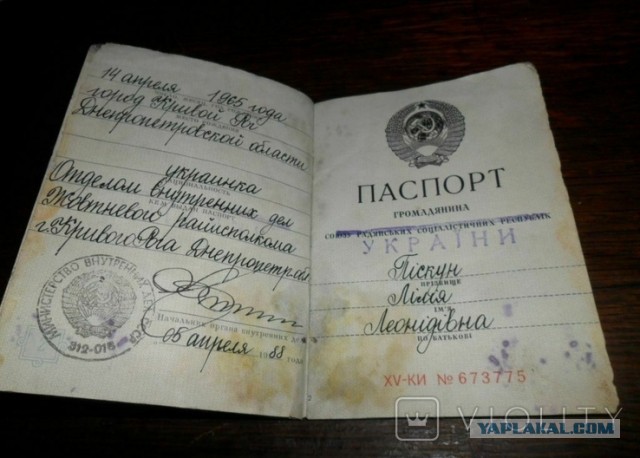 14 апреля 1965 года
город Кривой Рог
Днепропетровской области
украинка
НАЦИОНАЛЬНОСТЬ
Отделом внутренних дел
КЕМ ВЫДАН ПАСПОРТ
Жовтневого райисполкома
г. Кривого Рога Днепропетр.
МИНИСТЕРСТВО ВНУТРЕННИХ ДЕЛ СССР
Начальник органа внутренних
05 апреля 1988 года
ПАСПОРТ
ГРОМАДЯНИНА
СОЮЗУ РАДЯНСЬКИХ СОЦІАЛІСТИЧНИХ РЕСПУБЛІК
УКРАЇНИ
Піскун
ПРІЗВИЩЕ
Лілія
ІМ'Я
Леонідівна
ПО БАТЬКОВІ
XV-КИ № 673775
VIOLITY
YAPLAKAL.COM